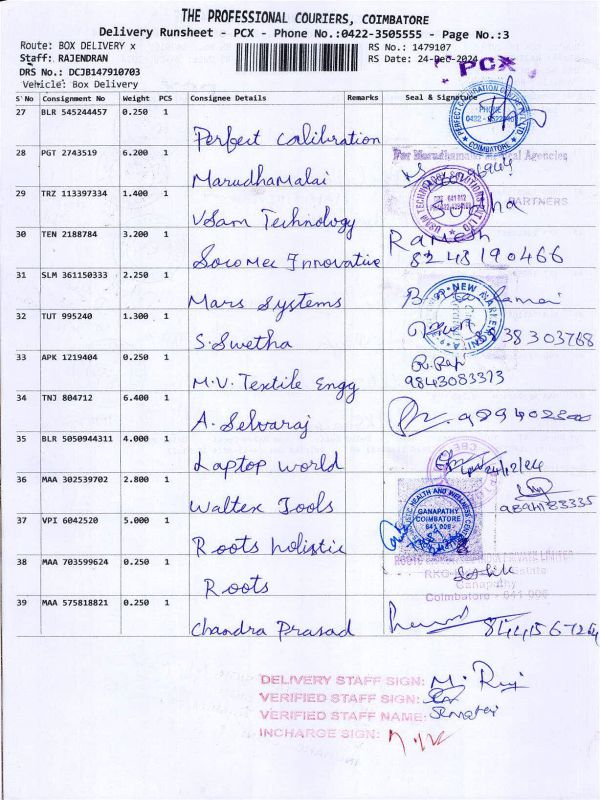 THE PROFESSIONAL COURIERS, COIMBATORE
Delivery Runsheet - PCX - Phone No.:0422-3505555 - Page No.:3
Route: BOX DELIVERY x
RS No.: 1479107
Staff: RAJENDRAN
RS Date: 24-Dec-2024
PCX
DRS No.: DCJB147910703
Vehicle: Box Delivery
S No Consignment No Weight PCS Consignee Details Remarks Seal & Signature
27 BLR 545244457 0.250 1 Perfect Calibration
COIMBATORE
28 PGT 2743519 6.200 1 Marudhamalai
For Marudhamalai Medical Agencies
29 TRZ 113397334 1.400 1 VSam Technology
PARTNERS
30 TEN 2188784 3.200 1 Socomec Innovative
Ramesh
8248190466
31 SLM 361150333 2.250 1 Mars Systems
32 TUT 995240 1.300 1 S. Swetha
33 APK 1219404 0.250 1 M.V. Textile Engg
9843083373
34 TNJ 804712 6.400 1 A. Selvaraj
35 BLR 5050944311 4.000 1 Laptop world
24/12/24
36 MAA 302539702 2.800 1 Waltex Tools
9894183335
37 VPI 6042520 5.000 1 Roots holistic
HEALTH AND WELLNESS
GANAPATHY
COIMBATORE
641 006
38 MAA 703599624 0.250 1 Roots
Ganapathy
Coimbatore - 641 006
39 MAA 575818821 0.250 1 Chandra Prasad
DELIVERY STAFF SIGN:
VERIFIED STAFF SIGN:
VERIFIED STAFF NAME:
INCHARGE SIGN: